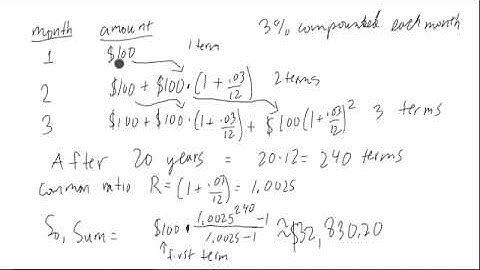 month amount 3% compounded each month
1 $100 1 term
2 $100 + $100·(1+.03/12) 2 terms
3 $100+$100·(1+.03/12) + $100(1+.03/12)^2 3 terms
After 20 years = 20·12 = 240 terms
Common ratio R=(1+.03/12)=1.0025
So, Sum = $100·(1.0025^240-1)/(1.0025-1) ≈$32,830.20
↑first term